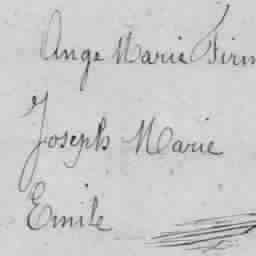 Ange Marie Firm
Joseph Marie
Emile